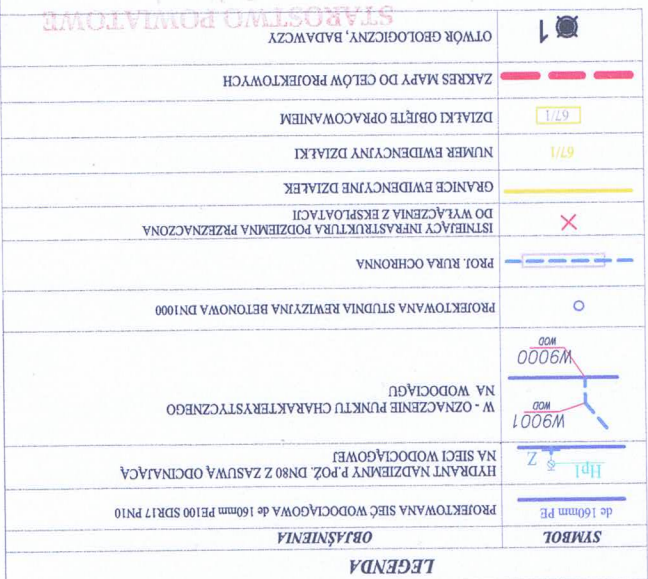 LEGENDA
SYMBOL OBJAŚNIENIA
de 160mm PE PROJEKTOWANA SIEĆ WODOCIĄGOWA de 160mm PE100 SDR17 PN10
Hp1 Z HYDRANT NADZIEMNY P.POŻ. DN80 Z ZASUWĄ ODCINAJĄCĄ
NA SIECI WODOCIĄGOWEJ
W9001
WOD
W9000
WOD
W - OZNACZENIE PUNKTU CHARAKTERYSTYCZNEGO
NA WODOCIĄGU
PROJEKTOWANA STUDNIA REWIZYJNA BETONOWA DN1000
PROJ. RURA OCHRONNA
ISTNIEJĄCY INFRASTRUKTURA PODZIEMNA PRZEZNACZONA
DO WYŁĄCZENIA Z EKSPLOATACJI
GRANICE EWIDENCYJNE DZIAŁEK
67/1 NUMER EWIDENCYJNY DZIAŁKI
67/1 DZIAŁKI OBJĘTE OPRACOWANIEM
ZAKRES MAPY DO CELÓW PROJEKTOWYCH
1 OTWÓR GEOLOGICZNY, BADAWCZY
STAROSTWO POWIATOWE